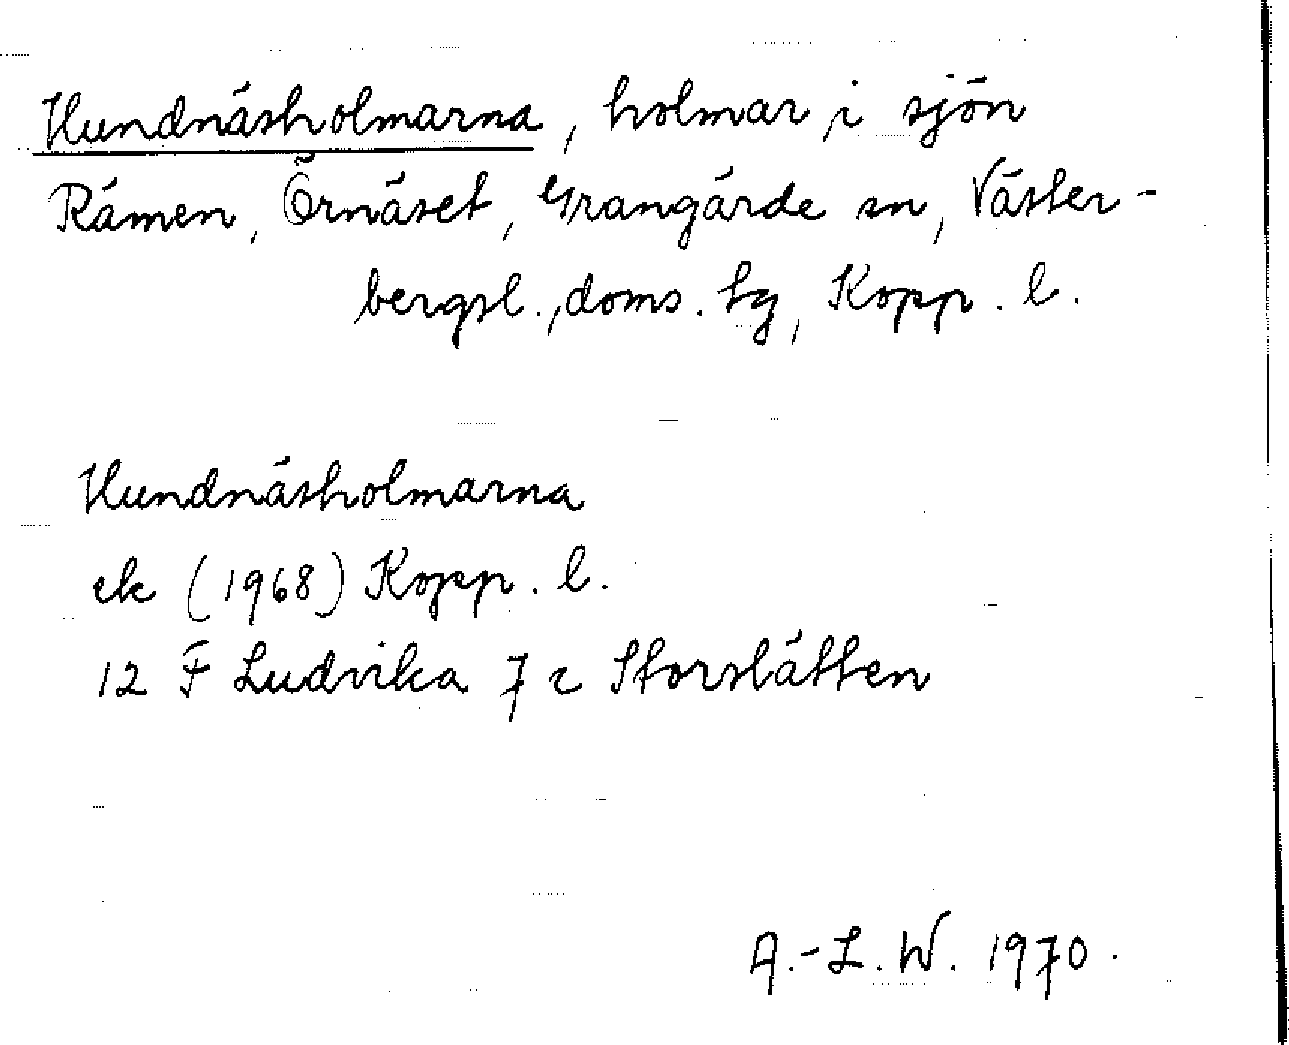 Hundnäsholmarna, holmar i sjön
Rämen, Örnäset, Grangärde sn, Väster-
bergsl. doms. hg, Kopp. l.
Hundnäsholmarna
ek (1968) Kopp. l.
12 F Ludvika 7 c Storslätten
A.-L. W. 1970.